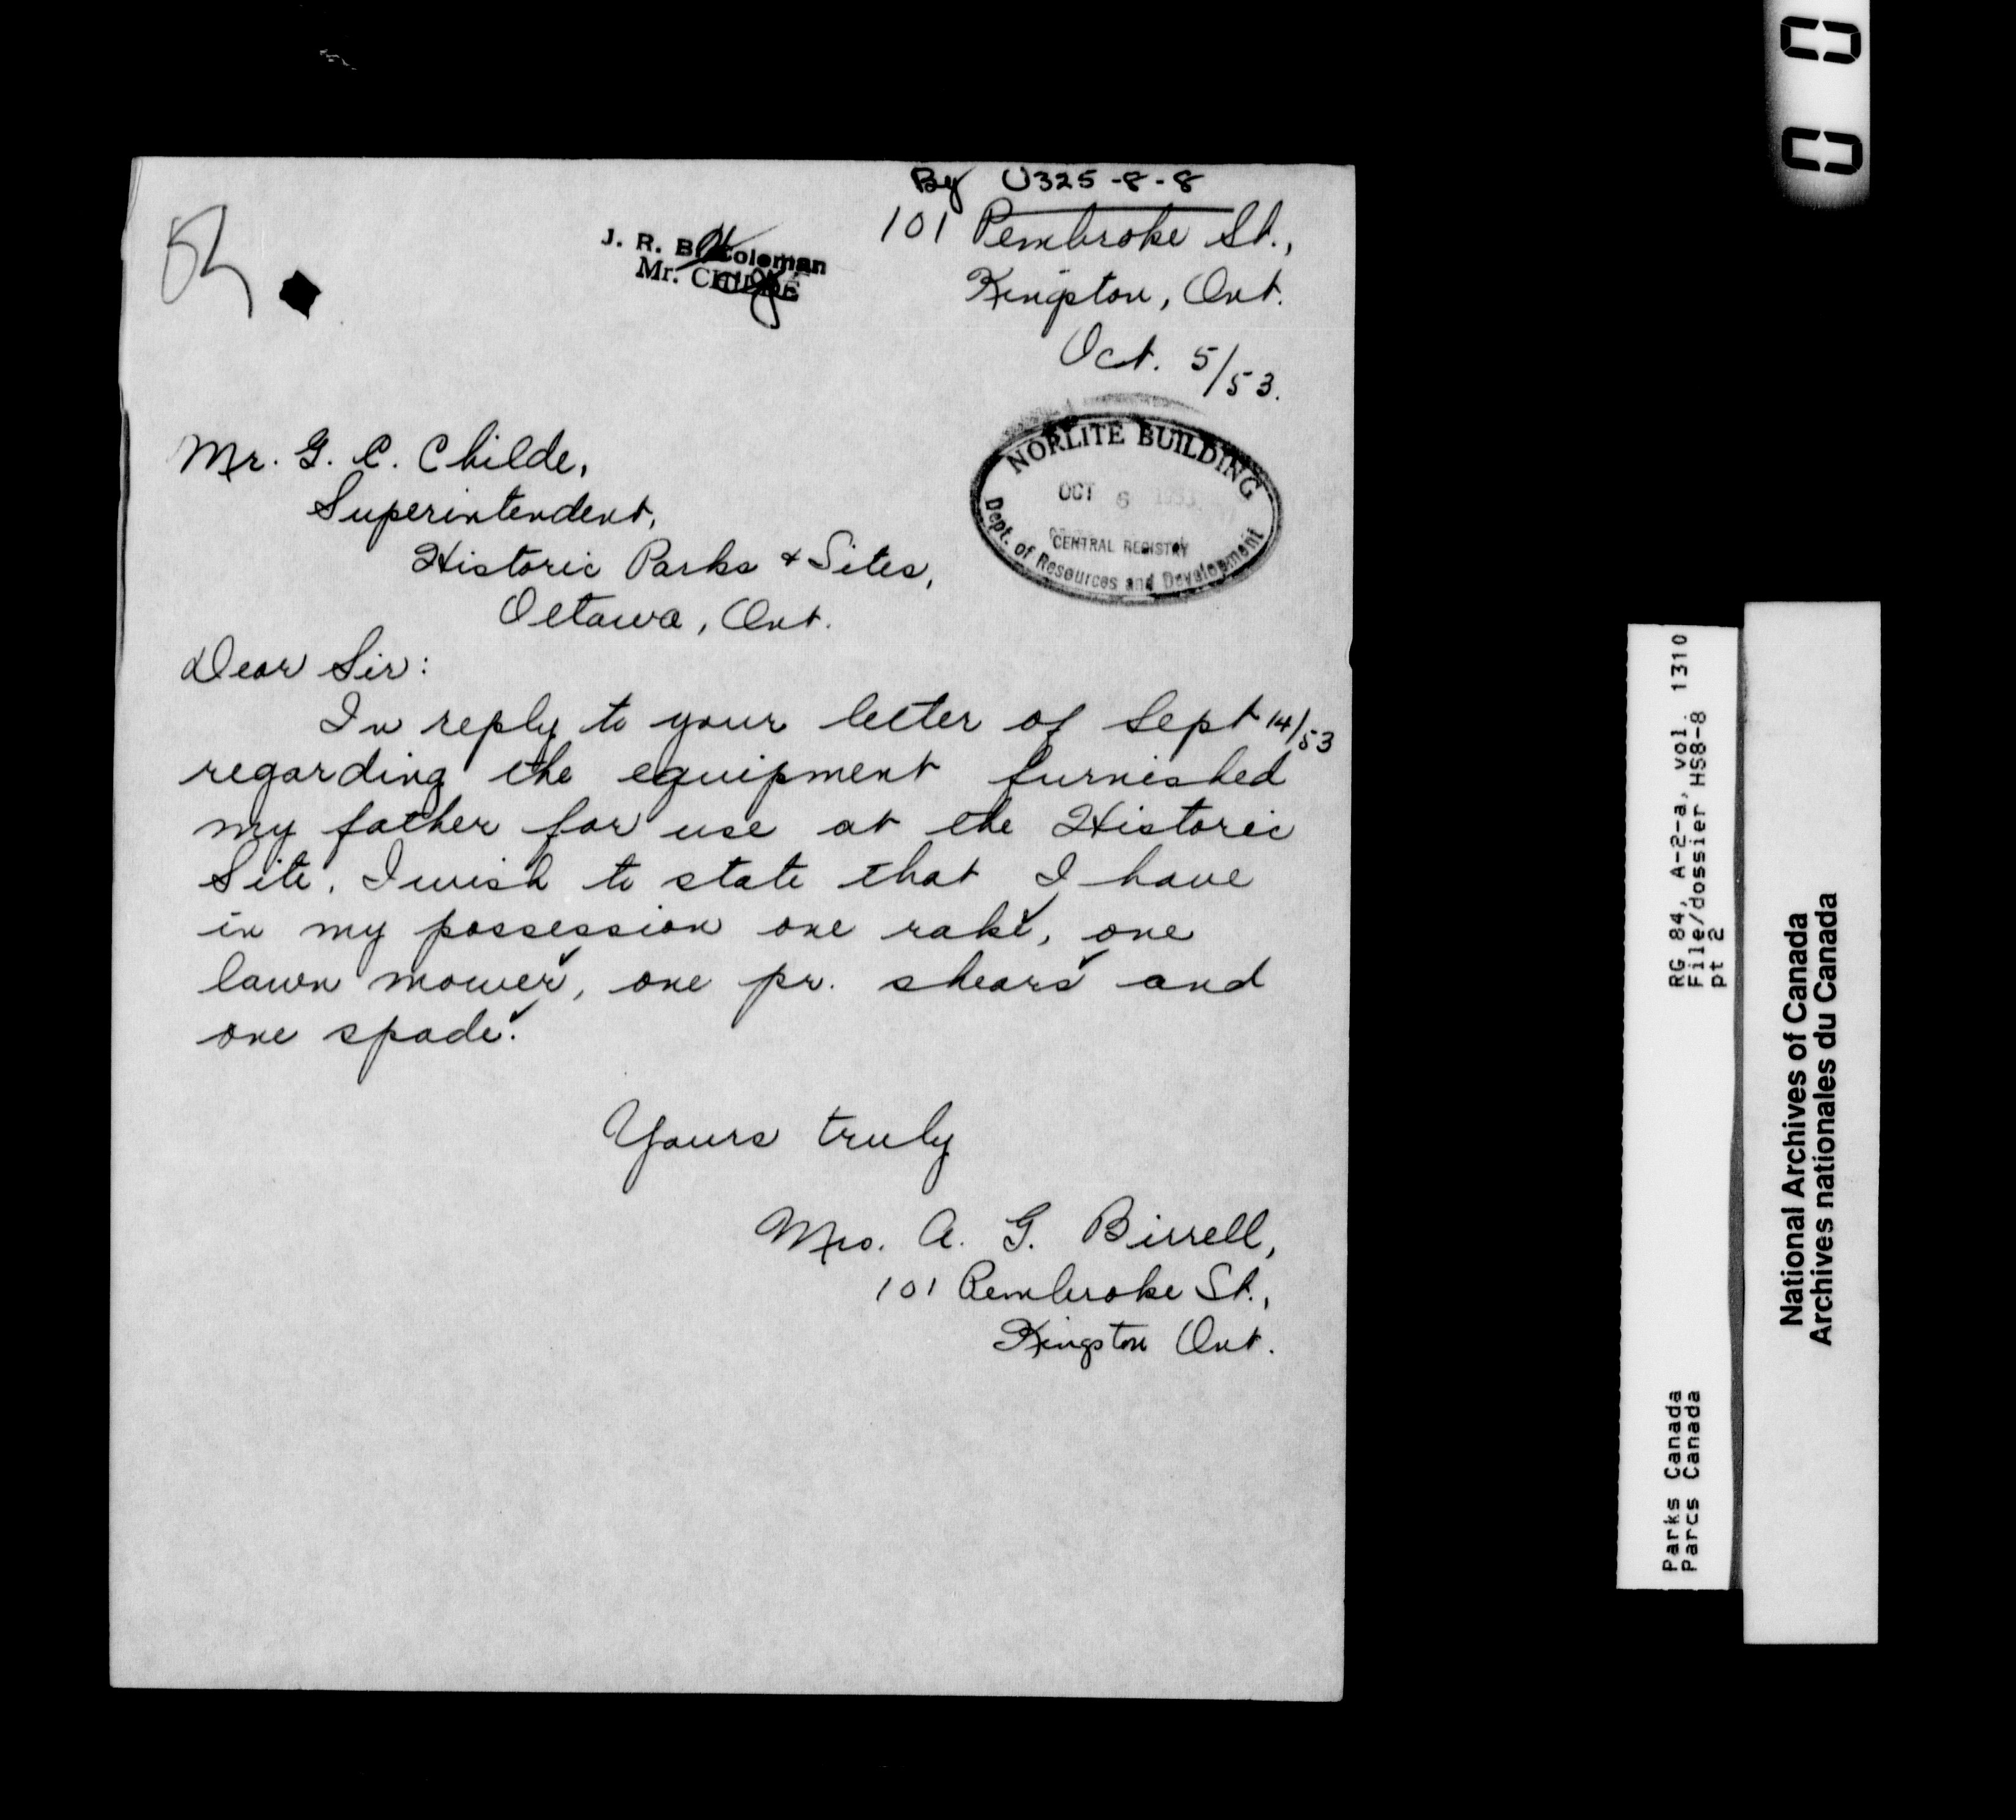 By U325-8-8
101 Pembroke St.,
Kingston, Ont.
Oct. 5/53.
J. R. B. Coleman
Mr. CHILDE
Mr. G. C. Childe,
Superintendent,
Historic Parks & Sites,
Ottawa, Ont.
NORLITE BUILDING
OCT 6 1953
CENTRAL REGISTRY
Dept. of Resources and Development
Dear Sir:
In reply to your letter of Sept 14/53
regarding the equipment furnished
my father for use at the Historic
Site. I wish to state that I have
in my possession one rake, one
lawn mower, one pr. shears and
one spade.
Yours truly
Mrs. A. G. Birrell,
101 Pembroke St.,
Kingston Ont.
RG 84, A-2-a, vol. 1310
File/dossier HS8-8
pt 2
Parks Canada
Parcs Canada
National Archives of Canada
Archives nationales du Canada
00